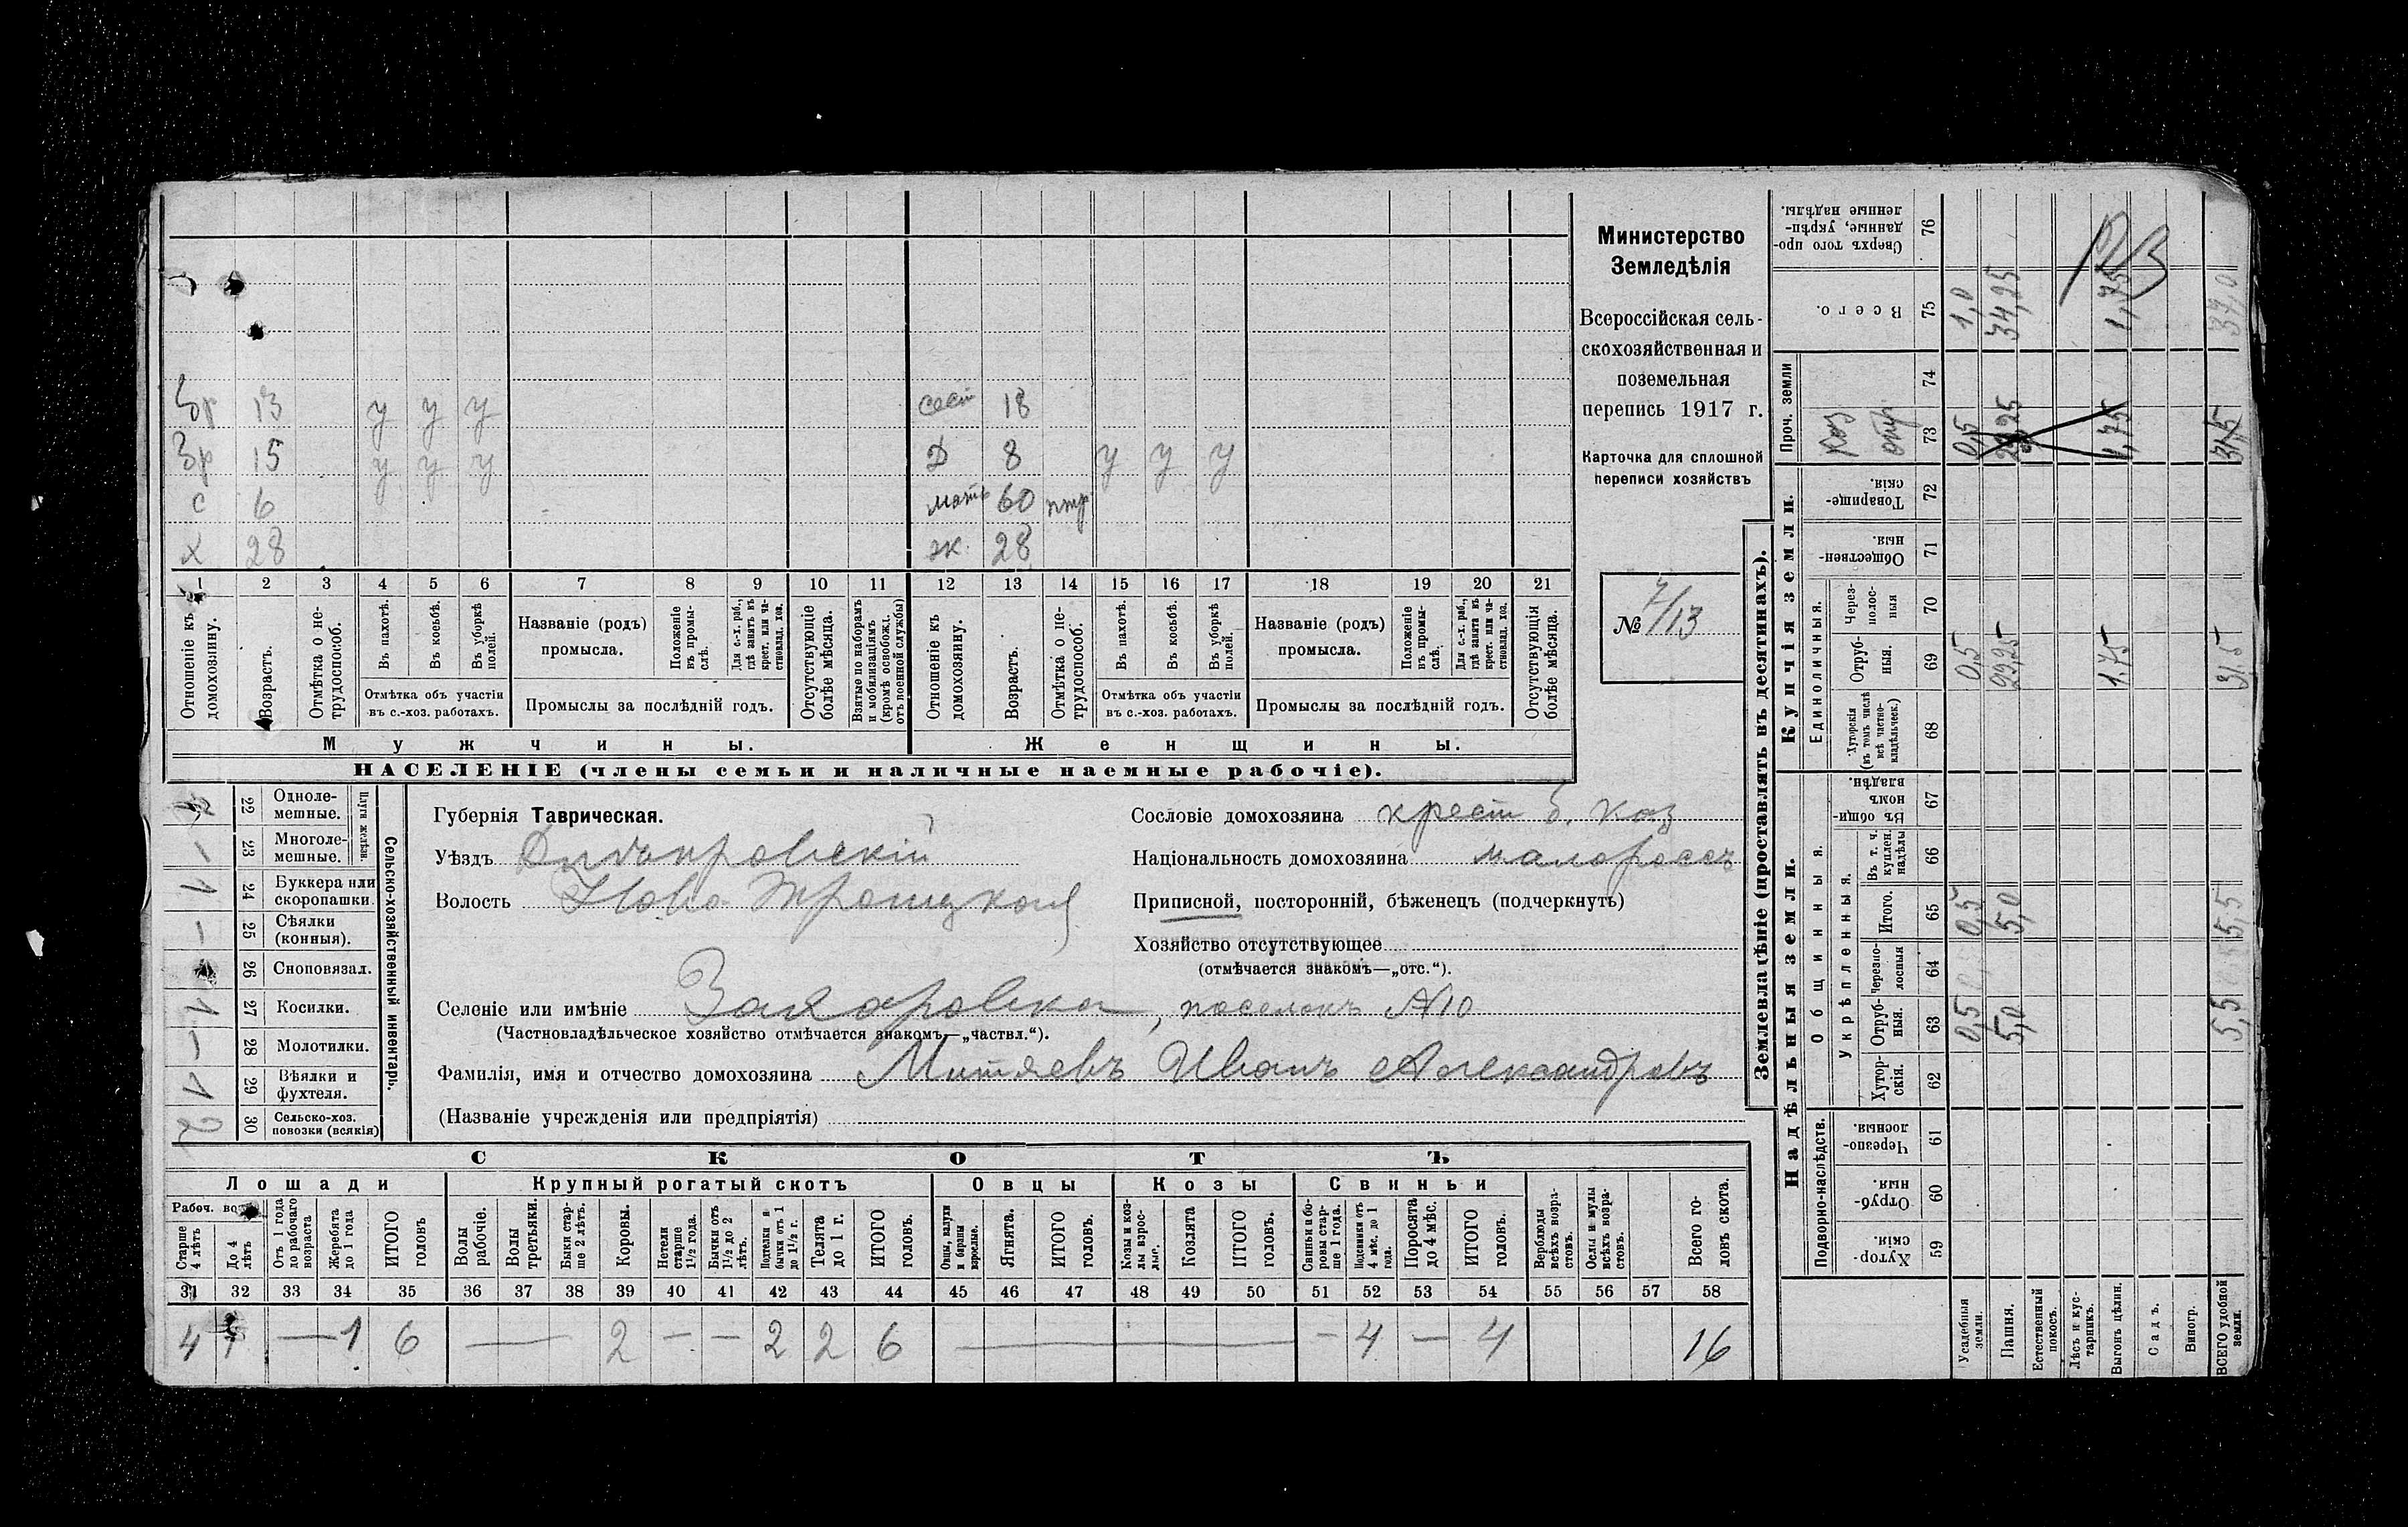 Министерство
Земледѣлія
Всероссійская сель-
скохозяйственная и
поземельная
перепись 1917 г.
Карточка для сплошной
переписи хозяйствъ
№ 7/13
бр 13 у у у сест 18
бр 15 у у у д 8 у у у
с 6 мать 60
х 28 ж. 28
1 2 3 4 5 6 7 8 9 10 11 12 13 14 15 16 17 18 19 20 21
Отношеніе къ домохозяину.
Возрастъ.
Отмѣтка о не-трудоспособ.
Въ пахотѣ.
Въ косьбѣ.
Въ уборкѣ полей.
Отмѣтка объ участіи въ с.-хоз. работахъ.
Названіе (родъ) промысла.
Положеніе въ промы-слѣ.
Для с.-х. раб., гдѣ занятъ въ крест. или ча-стновлад. хоз.
Промыслы за послѣдній годъ.
Отсутствующіе болѣе мѣсяца.
Взятые по наборамъ и мобилизаціямъ (кромѣ освобожд. отъ военной службы)
Отношеніе къ домохозяину.
Возрастъ.
Отмѣтка о не-трудоспособ.
Въ пахотѣ.
Въ косьбѣ.
Въ уборкѣ полей.
Отмѣтка объ участіи въ с.-хоз. работахъ.
Названіе (родъ) промысла.
Положеніе въ промы-слѣ.
Для с.-х. раб., гдѣ занята въ крест. или ча-стновлад. хоз.
Промыслы за послѣдній годъ.
Отсутствующія болѣе мѣсяца.
Мужчины. Женщины.
НАСЕЛЕНІЕ (члены семьи и наличные наемные рабочіе).
Сельско-хозяйственный инвентарь.
Плуги желѣзн.
22 Одноле-мешные.
— 23 Многоле-мешные.
1 24 Буккера или скоропашки.
— 25 Сѣялки (конныя).
26 Сноповязал.
1 27 Косилки.
— 28 Молотилки.
1 29 Вѣялки и фухтеля.
2 30 Сельско-хоз. повозки (всякія)
Губернія Таврическая.
Уѣздъ Днѣпровскій
Волость Ново Троицкая
Селеніе или имѣніе Захаровка, поселокъ №10
(Частновладѣльческое хозяйство отмѣчается знакомъ—„частвл.“).
Фамилія, имя и отчество домохозяина Митяевъ Иванъ Александровъ
(Названіе учрежденія или предпріятія)
Сословіе домохозяина крест б. каз
Національность домохозяина малороссъ
Приписной, посторонній, бѣженецъ (подчеркнуть)
Хозяйство отсутствующее
(отмѣчается знакомъ—„отс.“).
СКОТЪ
Лошади Крупный рогатый скотъ Овцы Козы Свиньи
Рабоч. возр.
Старше 4 лѣтъ
До 4 лѣтъ
Отъ 1 года до рабочаго возраста
Жеребята до 1 года
ИТОГО головъ
Волы рабочіе.
Волы третьяки.
Быки стар-ше 2 лѣтъ.
Коровы.
Нетели старше 1½ года.
Бычки отъ 1½ до 2 лѣтъ.
Подтелки и бычки отъ 1 до 1½ г.
Телята до 1 г.
ИТОГО головъ.
Овцы, валухи и бараны взрослые.
Ягнята.
ИТОГО головъ.
Козы и коз-лы взрос-лые.
Козлята
ИТОГО головъ.
Свиньи и бо-ровы стар-ше 1 года.
Подсвинки отъ 4 мѣс. до 1 года.
Поросята до 4 мѣс.
ИТОГО головъ.
Верблюды всѣхъ возра-стовъ.
Ослы и мулы всѣхъ возра-стовъ.
Всего го-ловъ скота.
31 32 33 34 35 36 37 38 39 40 41 42 43 44 45 46 47 48 49 50 51 52 53 54 55 56 57 58
4 — 1 6 — 2 — — 2 2 6 — — 4 — 4 16
Землевладѣніе (проставлять въ десятинахъ).
Надѣльныя земли. Купчія земли. Проч. земли
Подворно-наслѣдств.
Общинныя.
Укрѣпленныя.
Единоличныя.
Хутор-скія. 59
Отруб-ныя. 60
Черезпо-лосныя. 61
Хутор-скія. 62
Отруб-ныя. 63 0,5 5,0 5,5
Черезпо-лосныя 64
Итого. 65 0,5 5,0 5,5
Въ т. ч. куплен. надѣлы 66
Въ общин-номъ владѣн. 67
Хуторскія (въ томъ числѣ всѣ частно-владѣльческ.) 68
Отруб-ныя. 69 0,5 29,25 1.75 31,5
Через-полос-ныя 70
Обществен-ныя. 71
Товарище-скія. 72
73 0,5 29,25 1,75 31,5
74
Всего. 75 1,0 34,25 1,75 37,0
Сверхъ того про-данные, укрѣп-ленные надѣлы. 76
Усадебныя земли.
Пашня.
Естественный покосъ.
Лѣсъ и кус-тарникъ.
Выгонъ цѣлин.
Садъ.
Виногр.
ВСЕГО удобной земли.